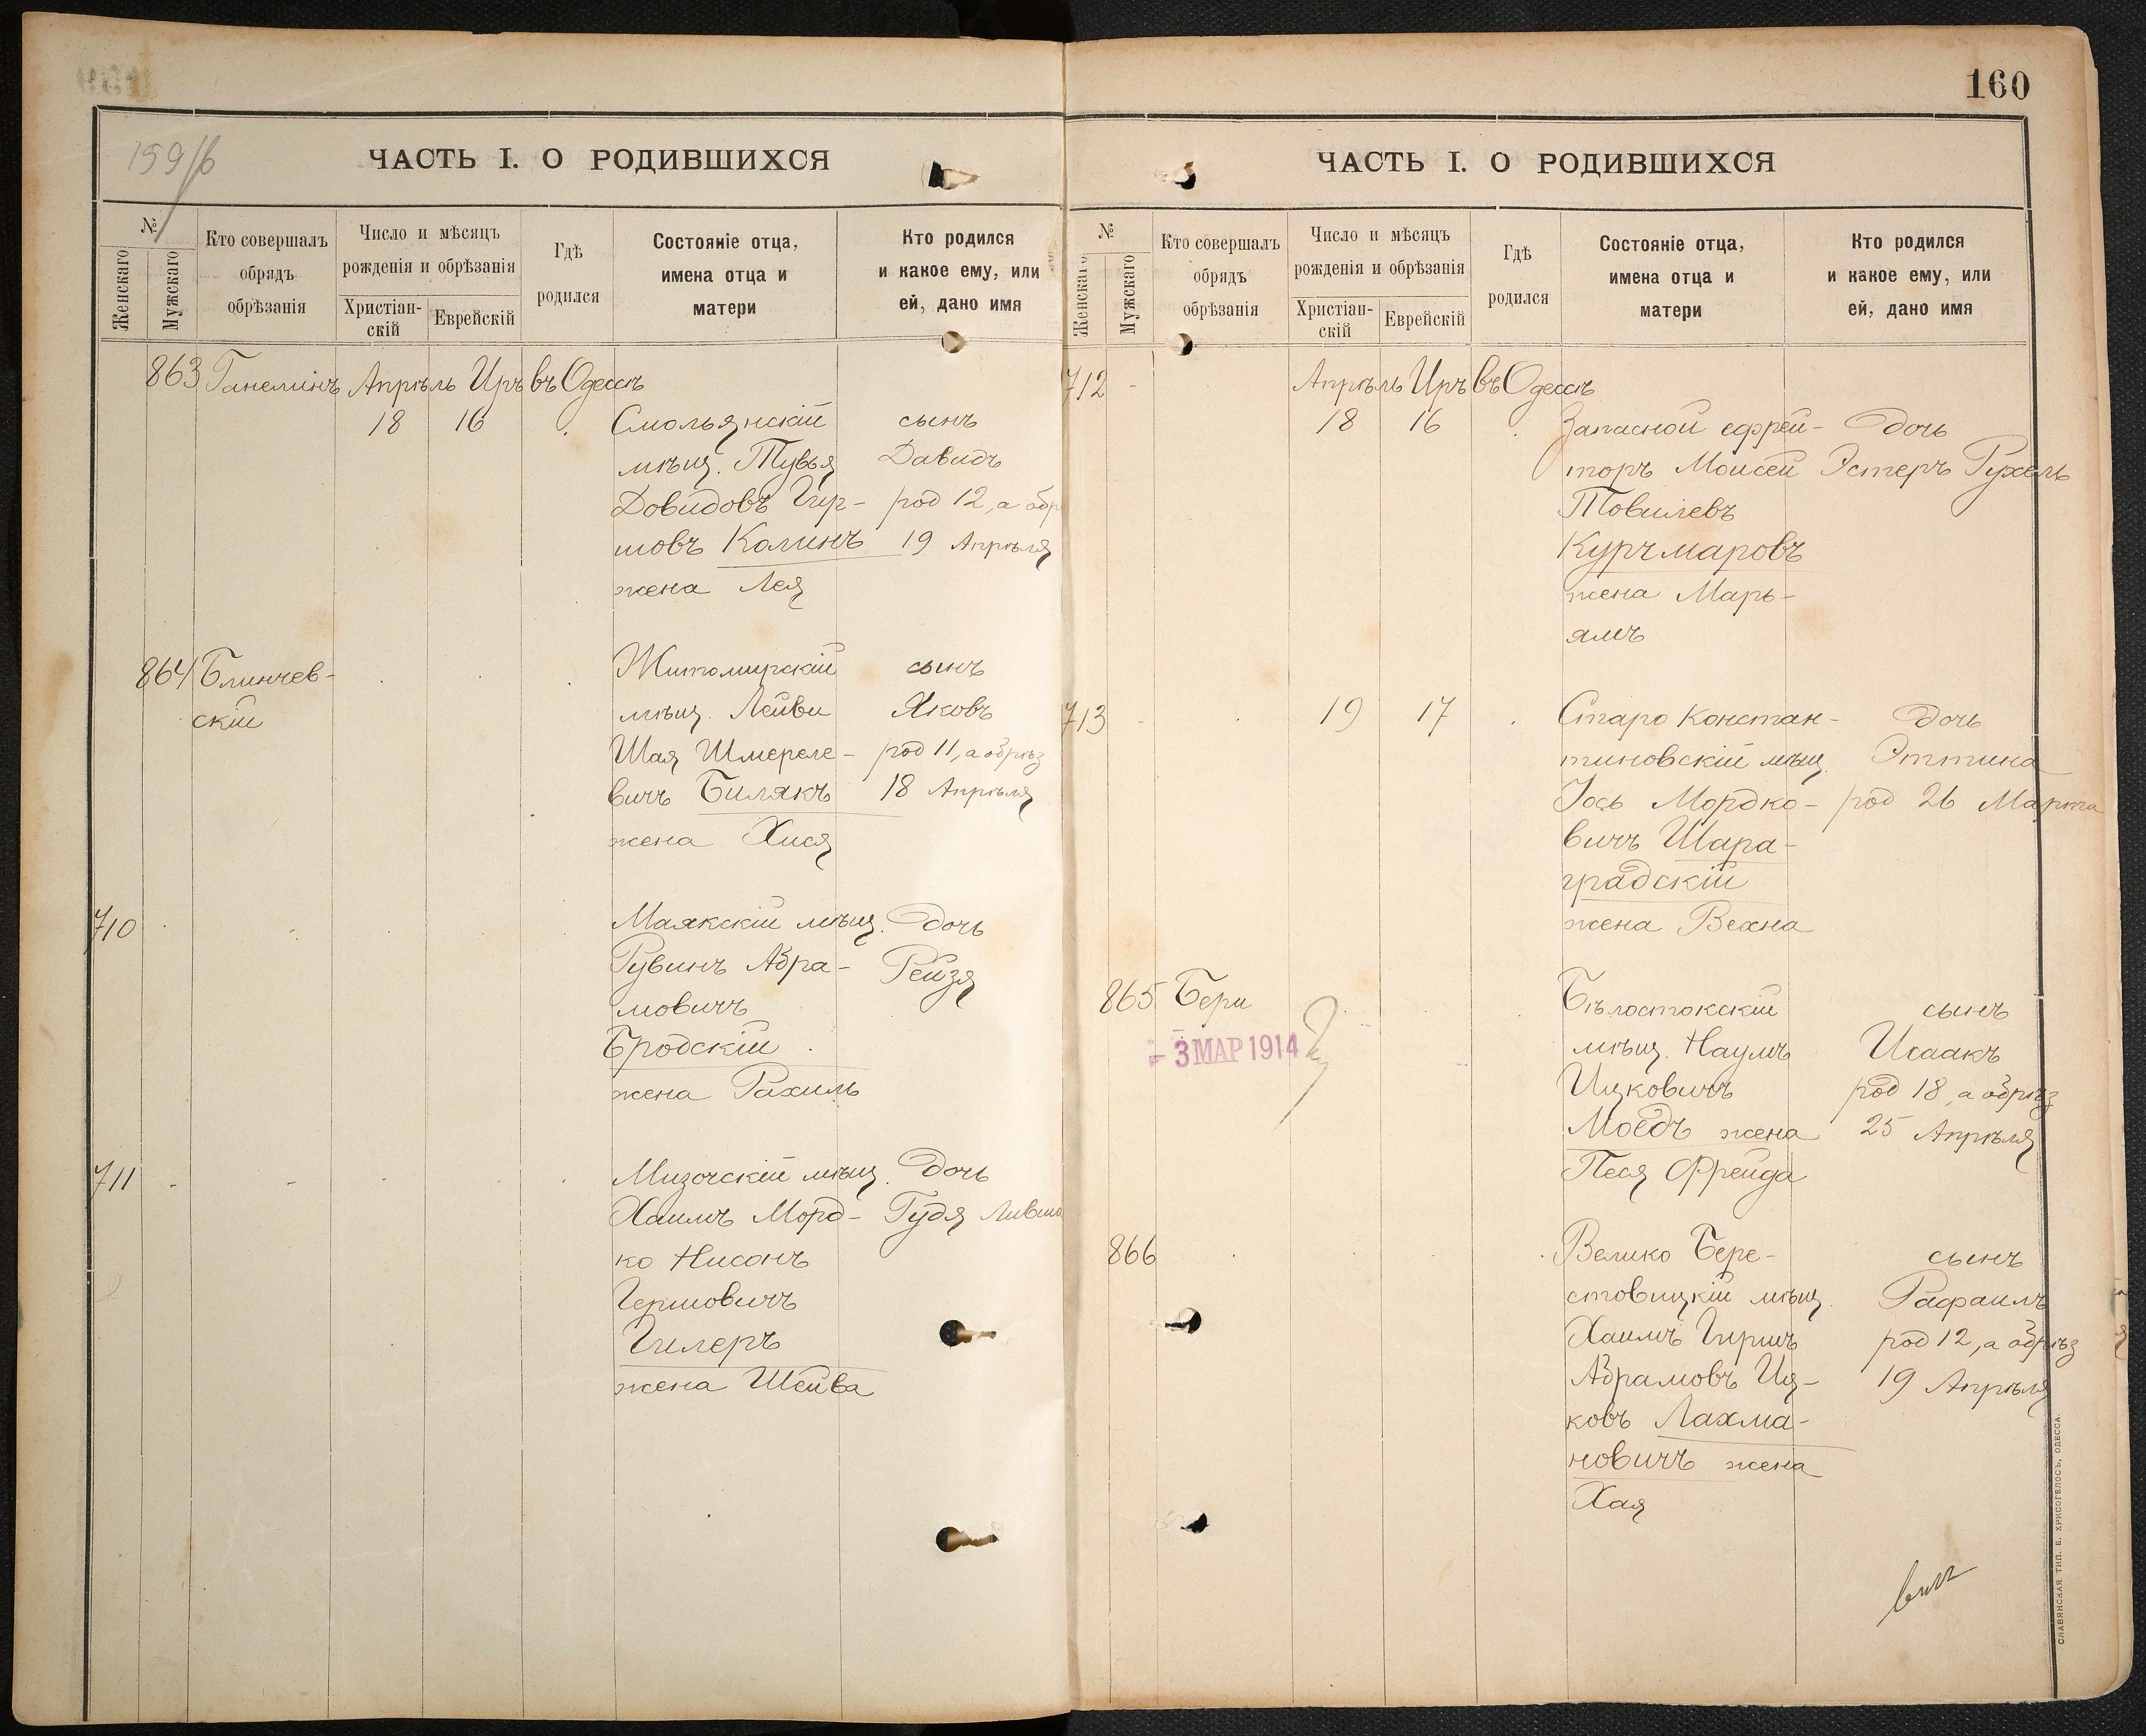 159/б
ЧАСТЬ I. О РОДИВШИХСЯ
№
Женскаго
Мужскаго
Кто совершалъ
обрядъ
обрѣзанія
Число и мѣсяцъ
рожденія и обрѣзанія
Христіан-
скій
Еврейскій
Гдѣ
родился
Состояніе отца,
имена отца и
матери
Кто родился
и какое ему, или
ей, дано имя
863 Ганелинъ Апрѣль Иръ въ Одессѣ
18 16 Смольянскій сынъ
мѣщ. Тувья Давидъ
Довидовъ Гир- род 12, а обр
шовъ Калинъ 19 Апрѣля
жена Лея
864 Блинчев- Житомирскій сынъ
скій мѣщ. Лейви Яковъ
Шая Шмереле- род 11, а обрѣз
вичъ Билякъ 18 Апрѣля
жена Хися
710 Маякскій мѣщ. дочь
Рувинъ Абра- Рейзя
мовичъ
Бродскій
жена Рахиль
711 - - Мизочскій мѣщ. дочь
Хаимъ Морд- Гудя
ко Нисонъ
Гершовичъ
Гилеръ
жена Шейва
160
ЧАСТЬ I. О РОДИВШИХСЯ
№
Женскаго
Мужскаго
Кто совершалъ
обрядъ
обрѣзанія
Число и мѣсяцъ
рожденія и обрѣзанія
Христіан-
скій
Еврейскій
Гдѣ
родился
Состояніе отца,
имена отца и
матери
Кто родился
и какое ему, или
ей, дано имя
712 - Апрѣль Иръ въ Одессѣ
18 16 Запасной ефрей- дочь
торъ Моисей Эстеръ Рухель
Товилевъ
Курчмаровъ
жена Марь-
ямъ
713 - 19 17 Старо Констан- дочь
тиновскій мѣщ. Эттина
Іось Мордко- род 26 Марта
вичъ Шара-
градскій
жена Вехна
865 Бери Бѣлостокскій сынъ
- 3 МАР 1914 мѣщ. Наумъ Исаакъ
Ицковичъ род 18, а обрѣз
Моедъ жена 25 Апрѣля
Песя Фрейда
866 Велико Бере- сынъ
стовицкій мѣщ. Рафаилъ
Хаимъ Гиршъ род 12, а обрѣз
Абрамовъ Иц- 19 Апрѣля
ковъ Лахма-
новичъ жена
Хая
СЛАВЯНСКАЯ ТИП. Е. ХРИСОГЕЛОСЪ, ОДЕССА.